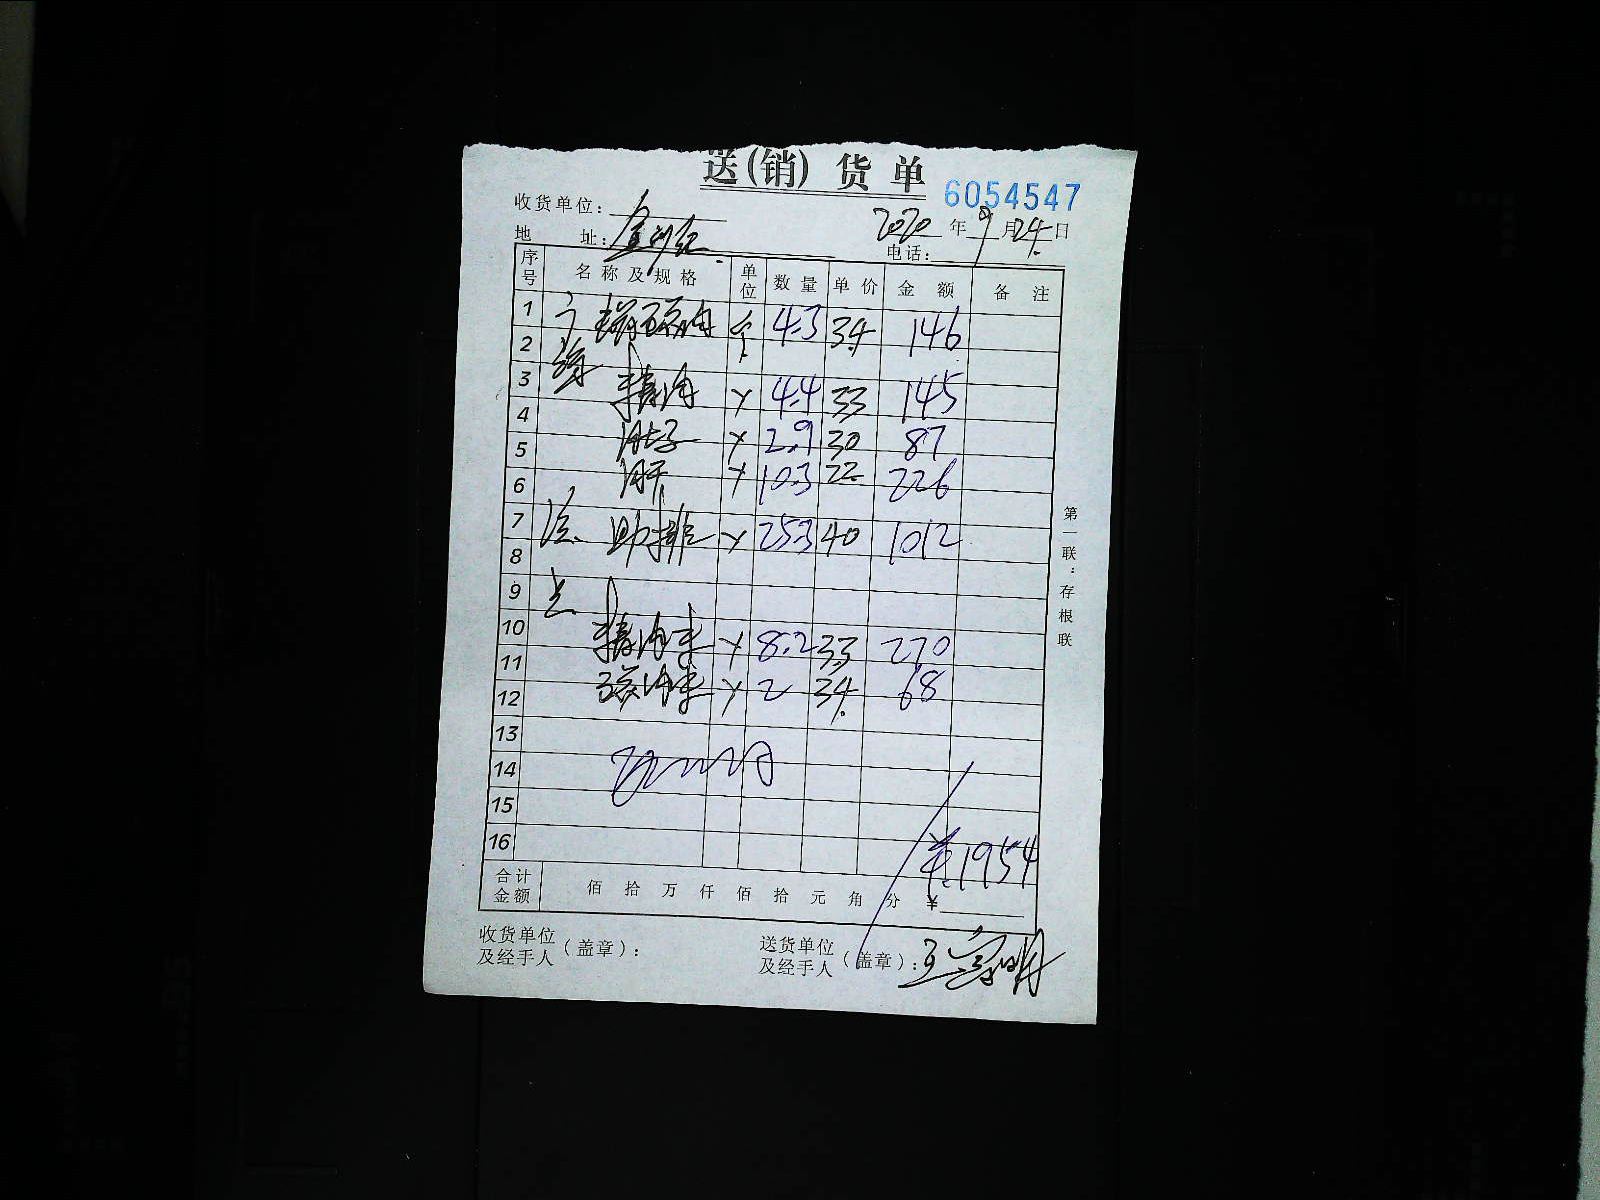 送(销)货单
6054547
收货单位:
2020年9月24日
地 址:
电话:
序号 名称及规格 单位 数量 单价 金额 备注
1 4.3 34 146
2
3 精肉 4.4 33 145
4
5 肚子 2.9 30 87
6 肝 10.3 22 226
7 肋排 25.3 40 1012
8
9
10 精肉末 8.2 33 270
11
12 2 34 68
13
14
15
16 ¥1954
合计金额 佰 拾 万 仟 佰 拾 元 角 分 ¥
收货单位及经手人(盖章):
送货单位及经手人(盖章):
第一联:存根联